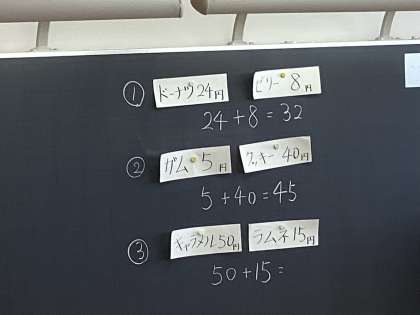 ① ドーナツ24円 ゼリー8円
24+8=32
② ガム5円 クッキー40円
5+40=45
③ キャラメル50円 ラムネ15円
50+15=